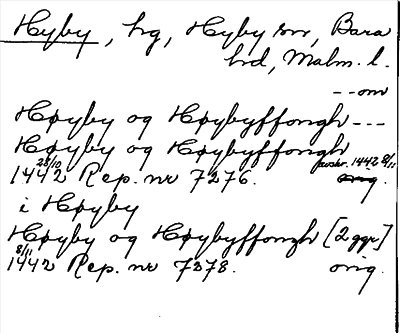 Hyby, hg, Hyby sn, Bara
hd, Malm. l.
-- om
Høyby og Høybyffongh ---
Høyby og Høybyffongh
28/10 avskr. 1442 8/11
1442 Rep. nr 7276. orig.
i Høyby
Høyby og Høybyffongh [2 ggr]
8/11
1442 Rep. nr 7278. orig.